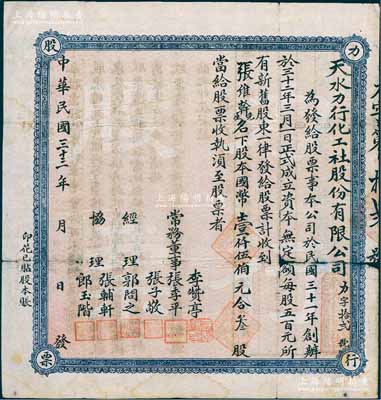 力
股
行
票
天水力行化工社股份有限公司
力字拾弍號
為發給股票事本公司於民國三十一年創辦
於三十二年三月一日正式成立資本無定額每股五百元所
有新舊股東一律發給股票計收到
張維乾名下股本國幣壹仟伍佰元合叁股
當給股票收執須至股票者
李贊亭
常務董事 張季平
張子敬
經理 郭問之
協理 張輔軒
郎玉階
中華民國三十二年 月 日 發
印花已貼股本賬